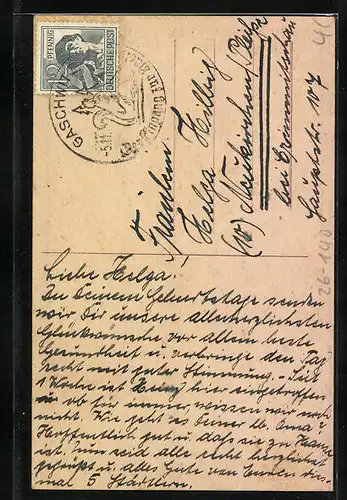 PFENNIG
12
DEUTSCHE POST
GASCHWITZ
-5.11.
Fräulein
Helga Helbig
(10) Neukirchen/Pleiße
bei Crimmitschau
Hauptstr. 107
26-140
Liebe Helga!
Zu Deinem Geburtstage senden
wir Dir unsere allerherzlichsten
Glückwünsche vor allem beste
Gesundheit u. verbringe den Tag
recht mit guter Stimmung. - Seit
1 Woche ist Heinz hier eingetroffen
ob für immer, wissen wir noch
nicht. Wie geht es Deiner lb. Oma?
Hoffentlich gut u. daß sie zu Hause
ist. Nun seid alle recht herzlichst
gegrüßt u. alles Gute von Euren
mal 5